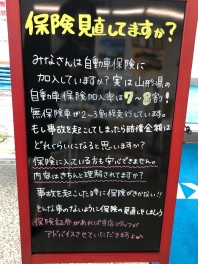 保険見直してますか?
みなさんは自動車保険に
加入していますか?実は山形県の
自動車保険加入率は7~8割!
無保険車が2~3割程走行しています。
もし事故を起こしてしまったら賠償金額は
どれぐらいになると思いますか?
保険に入っている方も安心できません。
内容はきちんと理解されてますか?
事故起こした時に保険がきかない!!
そんな事のないように保険の見直しをしましょう
保険証券があれば当店スタッフが
アドバイスさせていただきますよ